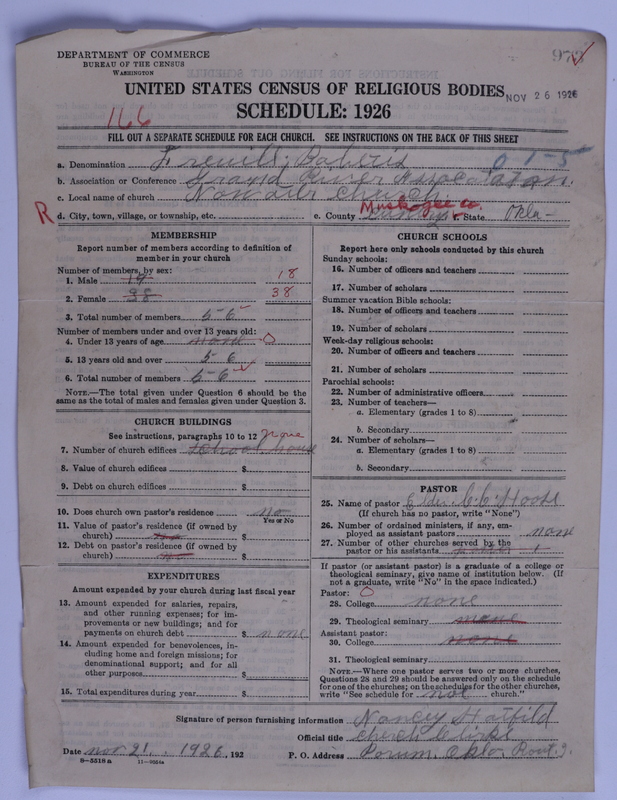 DEPARTMENT OF COMMERCE
BUREAU OF THE CENSUS
WASHINGTON
977
UNITED STATES CENSUS OF RELIGIOUS BODIES
NOV 26 1926
SCHEDULE: 1926
166
FILL OUT A SEPARATE SCHEDULE FOR EACH CHURCH. SEE INSTRUCTIONS ON THE BACK OF THIS SHEET
a. Denomination
0 1-5
b. Association or Conference Grand River Association
c. Local name of church Church
R d. City, town, village, or township, etc.
e. County Muskogee co. f. State Okla-
MEMBERSHIP
Report number of members according to definition of member in your church
Number of members, by sex:
1. Male 19 18
2. Female 38 38
3. Total number of members 56
Number of members under and over 13 years old:
4. Under 13 years of age none 0
5. 13 years old and over 56
6. Total number of members 56
NOTE.—The total given under Question 6 should be the same as the total of males and females given under Question 3.
CHURCH BUILDINGS
See instructions, paragraphs 10 to 12 None
7. Number of church edifices School house
8. Value of church edifices $
9. Debt on church edifices $
10. Does church own pastor's residence no
Yes or No
11. Value of pastor's residence (if owned by church) no $
12. Debt on pastor's residence (if owned by church) no $
EXPENDITURES
Amount expended by your church during last fiscal year
13. Amount expended for salaries, repairs, and other running expenses; for improvements or new buildings; and for payments on church debt $ none
14. Amount expended for benevolences, including home and foreign missions; for denominational support; and for all other purposes $
15. Total expenditures during year $
CHURCH SCHOOLS
Report here only schools conducted by this church
Sunday schools:
16. Number of officers and teachers
17. Number of scholars
Summer vacation Bible schools:
18. Number of officers and teachers
19. Number of scholars
Week-day religious schools:
20. Number of officers and teachers
21. Number of scholars
Parochial schools:
22. Number of administrative officers
23. Number of teachers—
a. Elementary (grades 1 to 8)
b. Secondary
24. Number of scholars—
a. Elementary (grades 1 to 8)
b. Secondary
PASTOR
25. Name of pastor Elder C.C.
(If church has no pastor, write "None")
26. Number of ordained ministers, if any, employed as assistant pastors none
27. Number of other churches served by the pastor or his assistants 1
If pastor (or assistant pastor) is a graduate of a college or theological seminary, give name of institution below. (If not a graduate, write "No" in the space indicated.)
Pastor: 0
28. College none
29. Theological seminary none
Assistant pastor:
30. College none
31. Theological seminary
NOTE.—Where one pastor serves two or more churches, Questions 28 and 29 should be answered only on the schedule for one of the churches; on the schedules for the other churches, write "See schedule for not church."
Signature of person furnishing information Nancy Hatfild
Official title Church Clirk
Date nov 21. 1926, 192 P. O. Address Porum, Okla, Rout 2.
8-5518 a 11-9054a